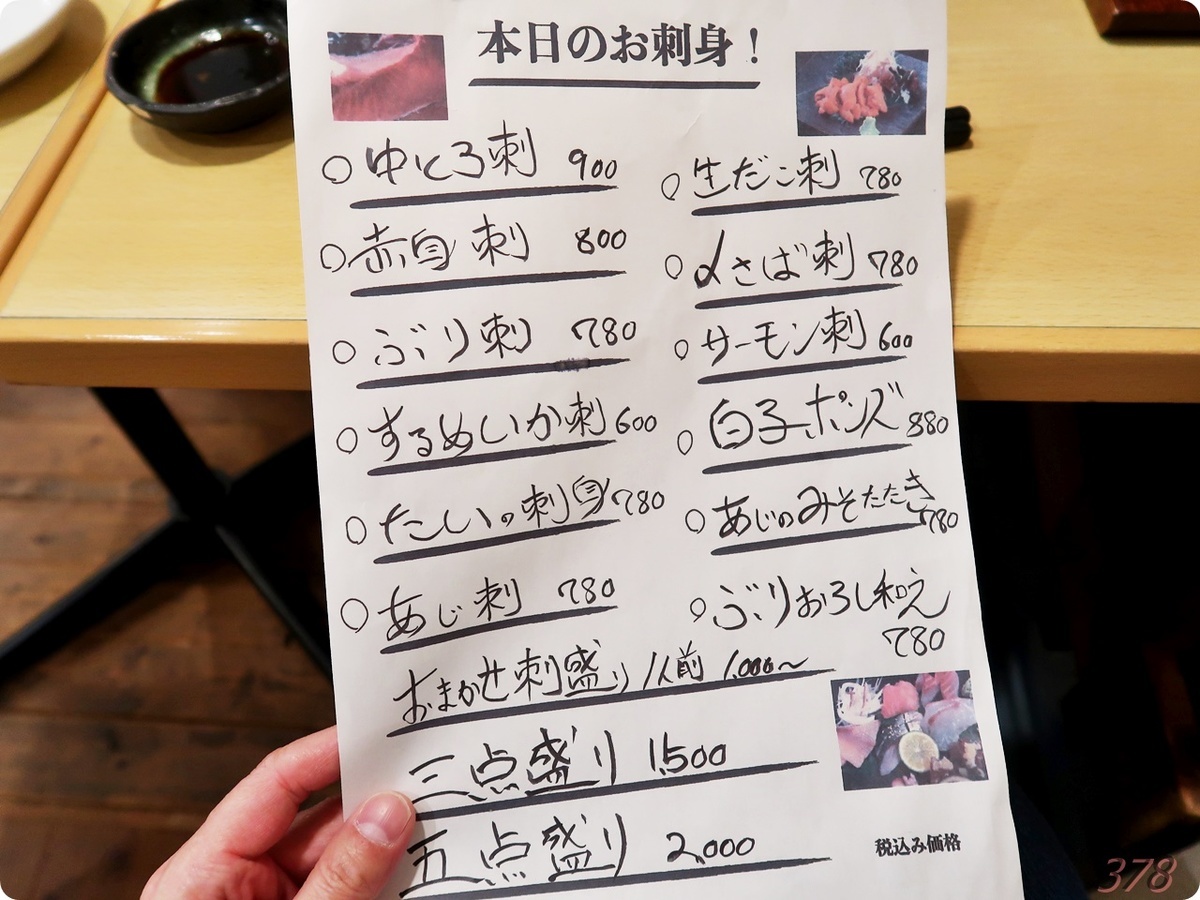 本日のお刺身！
○中とろ刺 900
○赤身刺 800
○ぶり刺 780
○するめいか刺 600
○たいの刺身 780
○あじ刺 780
○生だこ刺 780
○〆さば刺 780
○サーモン刺 600
○白子ポンズ 880
○あじのみそたたき 780
○ぶりおろし和え
780
おまかせ刺盛り 1人前 1,000〜
三点盛り 1,500
五点盛り 2,000
税込み価格
378